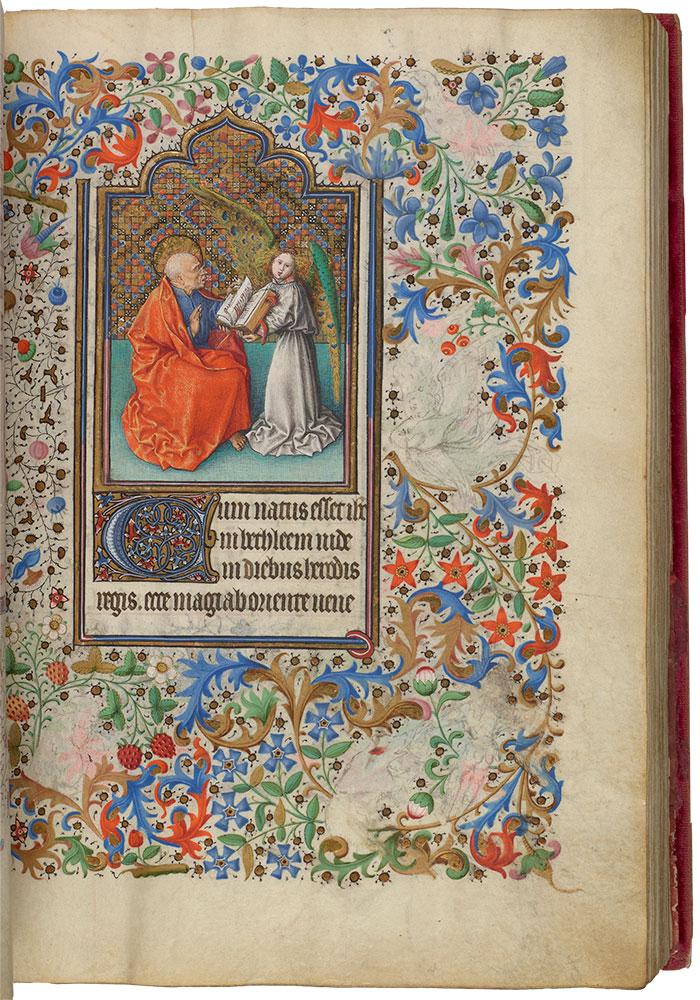 Cum natus esset ihc
in bethleem iude
in diebus herodis
regis. ecce magi ab oriente vene